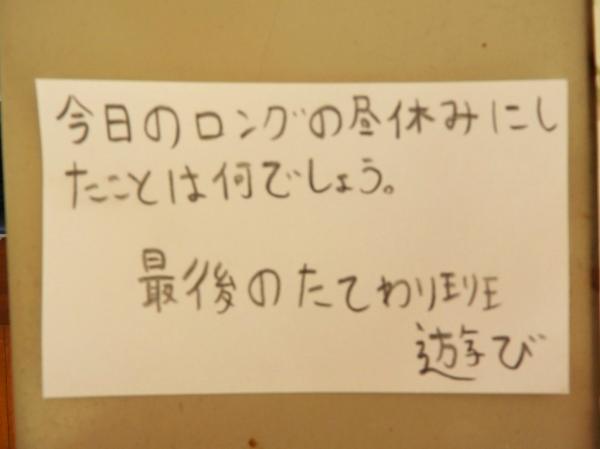 今日のロングの昼休みにし
たことは何でしょう。
最後のたてわり班
遊び